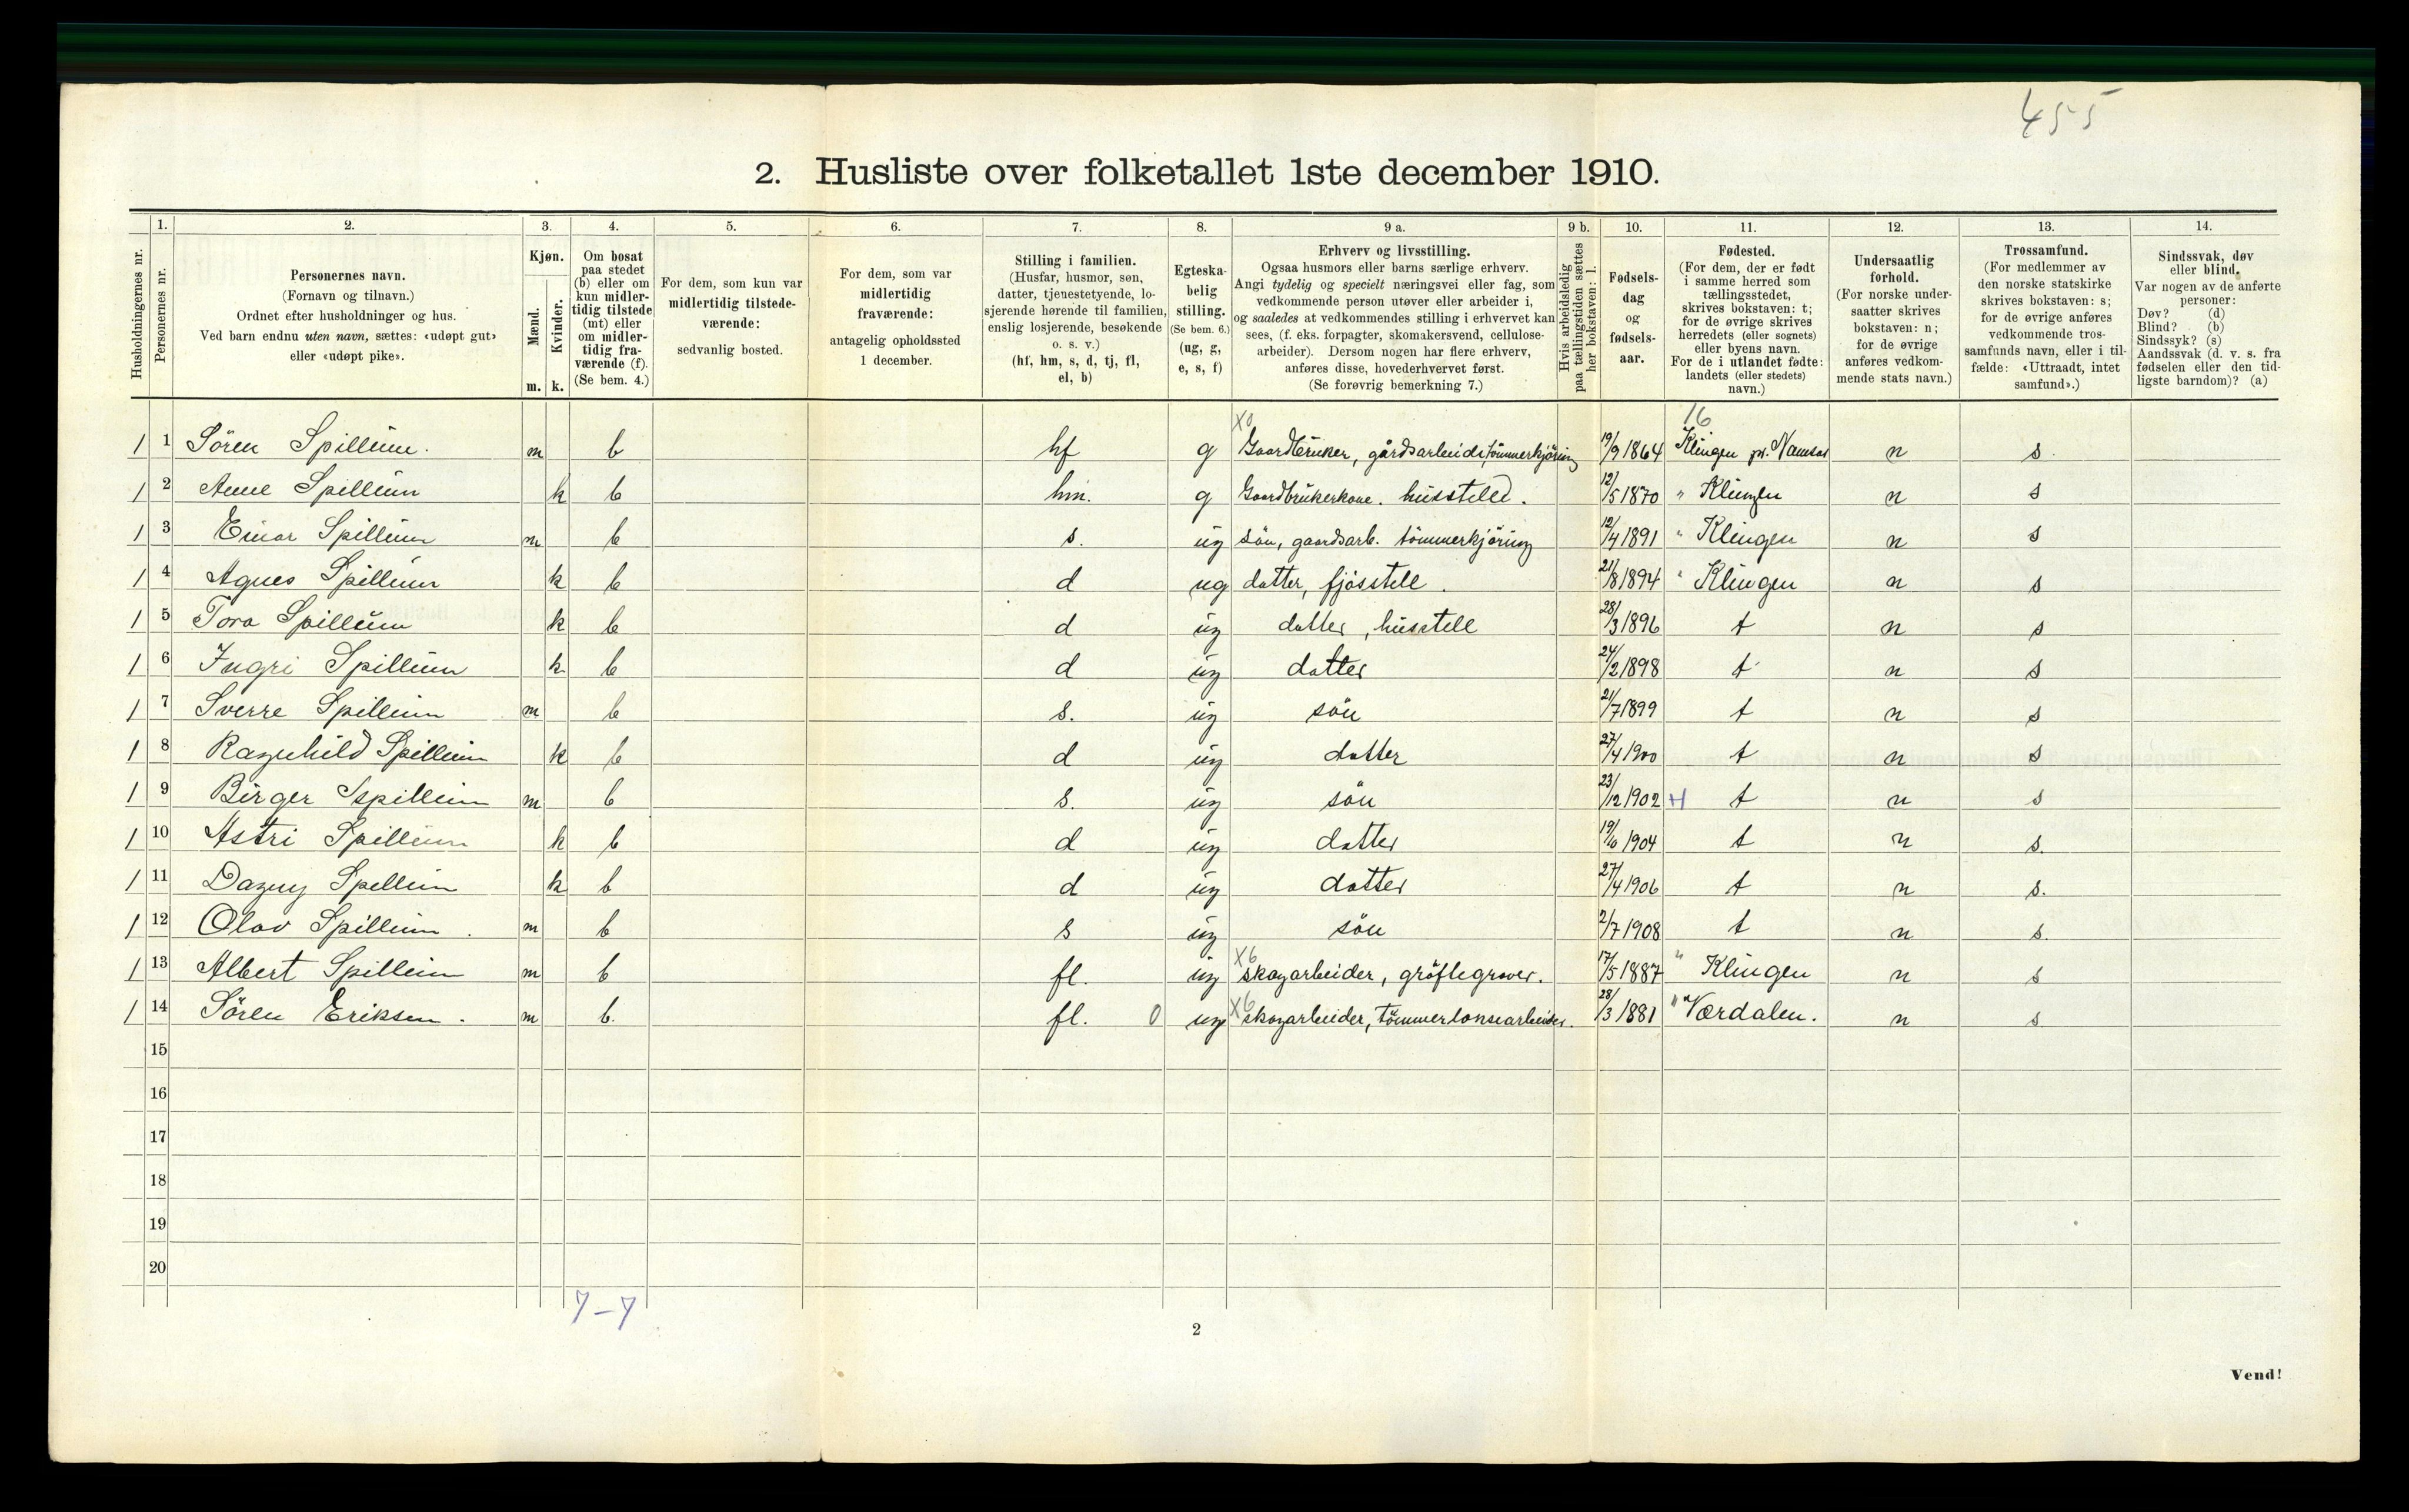 455
2. Husliste over folketallet 1ste december 1910.
Husholdningernes nr.
1. Personernes nr.
2. Personernes navn.
(Fornavn og tilnavn.)
Ordnet efter husholdninger og hus.
Ved barn endnu uten navn, sættes: «udøpt gut»
eller «udøpt pike».
3. Kjøn.
Mænd. m.
Kvinder. k.
4. Om bosat
paa stedet
(b) eller om
kun midler-
tidig tilstede
(mt) eller
om midler-
tidig fra-
værende (f).
(Se bem. 4.)
5. For dem, som kun var
midlertidig tilstede-
værende:
sedvanlig bosted.
6. For dem, som var
midlertidig
fraværende:
antagelig opholdssted
1 december.
7. Stilling i familien.
(Husfar, husmor, søn,
datter, tjenestetyende, lo-
sjerende hørende til familien,
enslig losjerende, besøkende
o. s. v.)
(hf, hm, s, d, tj, fl,
el, b)
8. Egteska-
belig
stilling.
(Se bem. 6.)
(ug, g,
e, s, f)
9 a. Erhverv og livsstilling.
Ogsaa husmors eller barns særlige erhverv.
Angi tydelig og specielt næringsvei eller fag, som
vedkommende person utøver eller arbeider i,
og saaledes at vedkommendes stilling i erhvervet kan
sees, (f. eks. forpagter, skomakersvend, cellulose-
arbeider). Dersom nogen har flere erhverv,
anføres disse, hovederhvervet først.
(Se forøvrig bemerkning 7.)
9 b. Hvis arbeidsledig
paa tællingstiden sættes
her bokstaven: l.
10. Fødsels-
dag
og
fødsels-
aar.
11. Fødested.
(For dem, der er født
i samme herred som
tællingsstedet,
skrives bokstaven: t;
for de øvrige skrives
herredets (eller sognets)
eller byens navn.
For de i utlandet fødte:
landets (eller stedets)
navn.)
12. Undersaatlig
forhold.
(For norske under-
saatter skrives
bokstaven: n;
for de øvrige
anføres vedkom-
mende stats navn.)
13. Trossamfund.
(For medlemmer av
den norske statskirke
skrives bokstaven: s;
for de øvrige anføres
vedkommende tros-
samfunds navn, eller i til-
fælde: «Uttraadt, intet
samfund».)
14. Sindssvak, døv
eller blind.
Var nogen av de anførte
personer:
Døv? (d)
Blind? (b)
Sindssyk? (s)
Aandssvak (d. v. s. fra
fødselen eller den tid-
ligste barndom)? (a)
X0 16
1 1 Sören Spillum. m b hf g Gaardbruker, gårdsarbeide, tömmerkjöring 19/9 1864 Klingen pr. Namsos n s.
1 2 Anne Spillum k b hm. g Gaardbrukerkone. husstell. 12/5 1870 " Klingen n s
1 3 Einar Spillum m b s. ug sön, gaardsarb. tömmerkjöring 12/4 1891 " Klingen n s
1 4 Agnes Spillum k b d ug datter, fjösstell. 21/8 1894 " Klingen n s
1 5 Tora Spillum k b d ug datter, husstell 28/3 1896 t n s
1 6 Ingri Spillum k b d ug datter 24/2 1898 t n s
1 7 Sverre Spillum m b s. ug sön 21/7 1899 t n s
1 8 Ragnhild Spillum k b d ug datter 27/4 1900 t n s
1 9 Birger Spillum m b s. ug sön 23/12 1902 H t n s
1 10 Astri Spillum k b d ug datter 1904 t n s.
1 11 Dagny Spillum k b d ug datter 27/4 1906 t n s.
1 12 Olav Spillum. m b s ug sön 2/7 1908 t n s.
1 13 Albert Spillum m b fl. ug X6 skogarbeider, gröftegraver. 17/5 1887 " Klingen n s
1 14 Sören Eriksen. m b. fl. 0 ug X6 skogarbeider, tömmerlensearbeider. 28/3 1881 " Værdalen. n s
15
16
17
18
19
20
7-7
2
Vend!